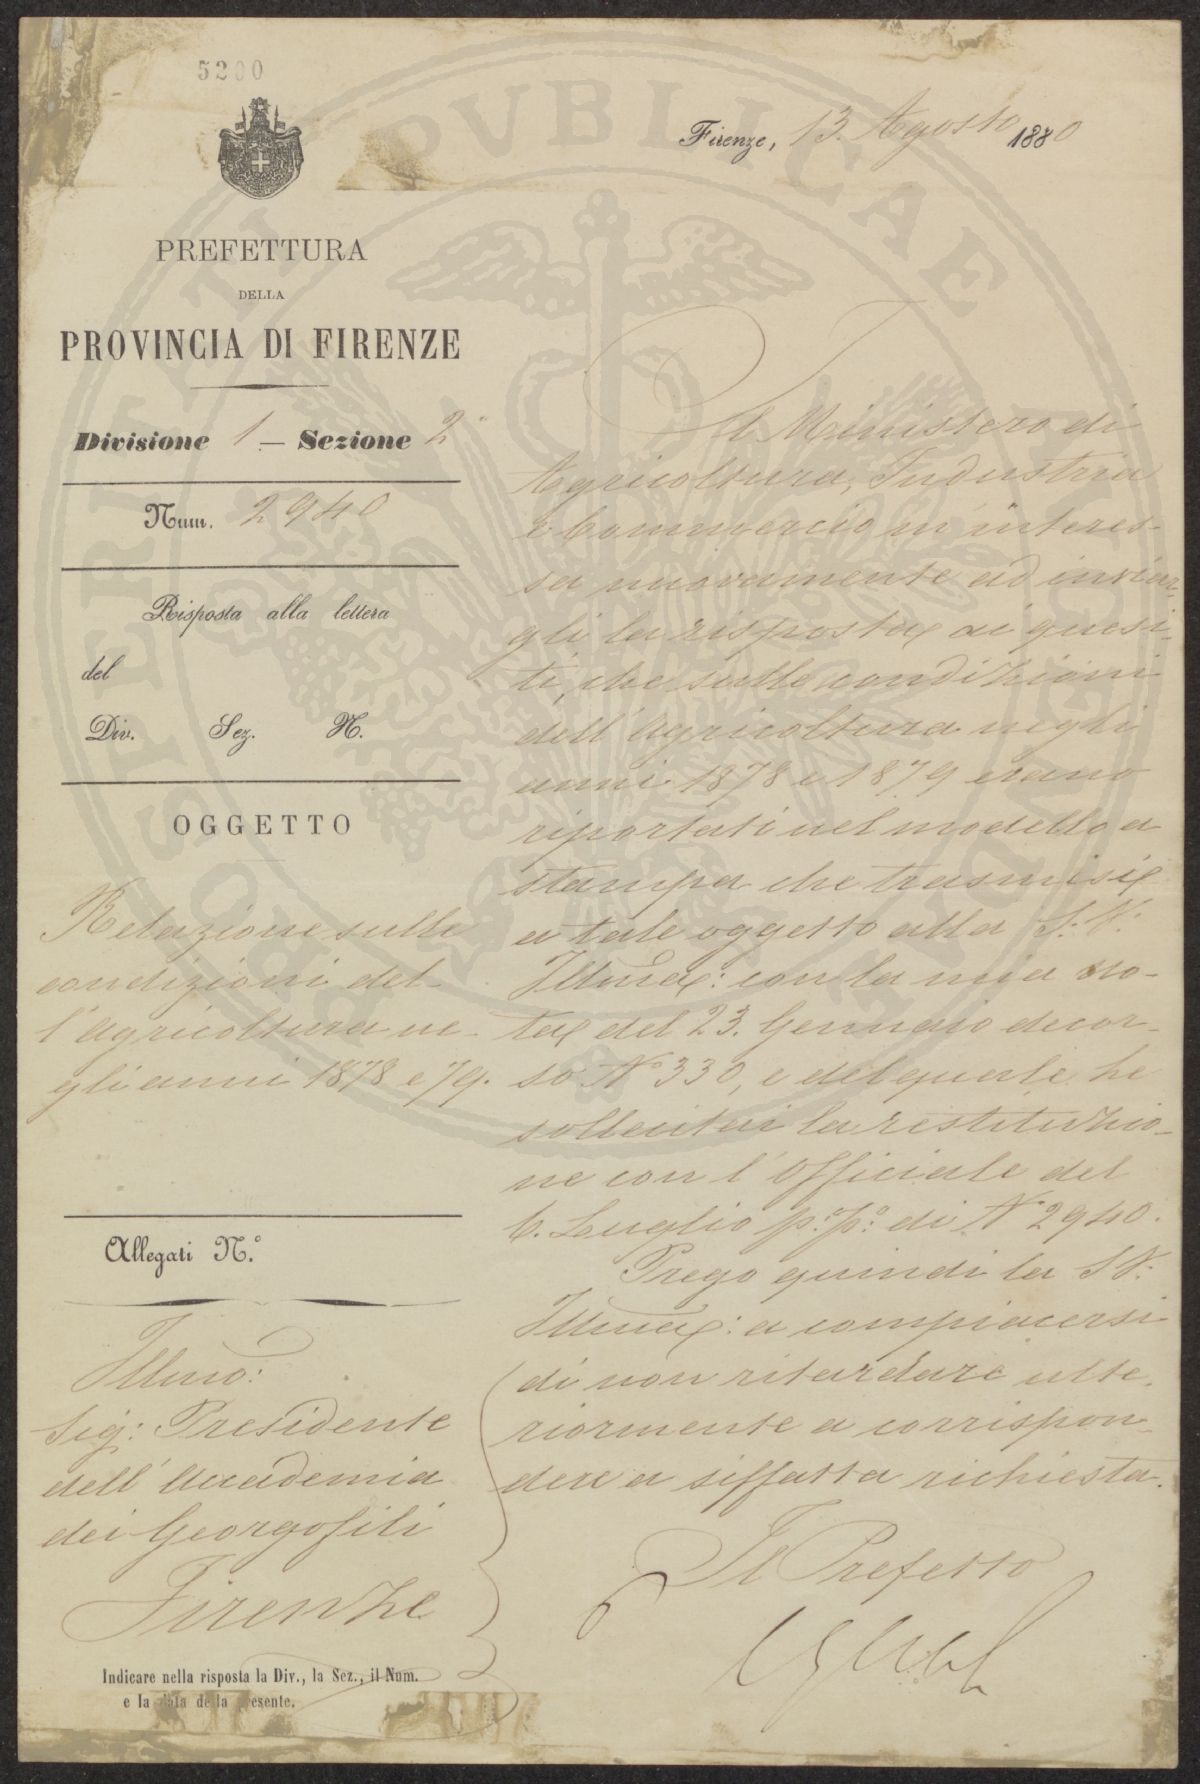 5200
Firenze, 13. Agosto 1880
PREFETTURA
DELLA
PROVINCIA DI FIRENZE
Divisione 1 – Sezione 2ª
Num. 2940
Risposta alla lettera
del
Div. Sez. N.
OGGETTO
Relazione sulle
condizioni del-
l'Agricoltura ne-
gli anni 1878 e 79.
Allegati N.º
Illmo:
Sig: Presidente
dell'Accademia
dei Georgofili
Firenze
Indicare nella risposta la Div., la Sez., il Num.
e la data della presente.
Il Ministero di
Agricoltura, Industria
e Commercio m'interes-
sa nuovamente ad inviar-
gli la risposta ai quesi-
ti, che sulle condizioni
dell'Agricoltura negli
anni 1878 e 1879 erano
riportati nel modello a
stampa che trasmisi
a tale oggetto alla S.V.
Illma: con la mia no-
ta del 23. Gennaio decor-
so Nº 330, e del quale ne
sollecitai la restituzio-
ne con l'Officiale del
6. Luglio p:º p:º di Nº 2940.
Prego quindi la S.V:
Illma: a compiacersi
di non ritardare ulte-
riormente a corrispon-
dere a siffatta richiesta.
Il Prefetto
PROSPERITATI PUBLICAE AUGENDAE